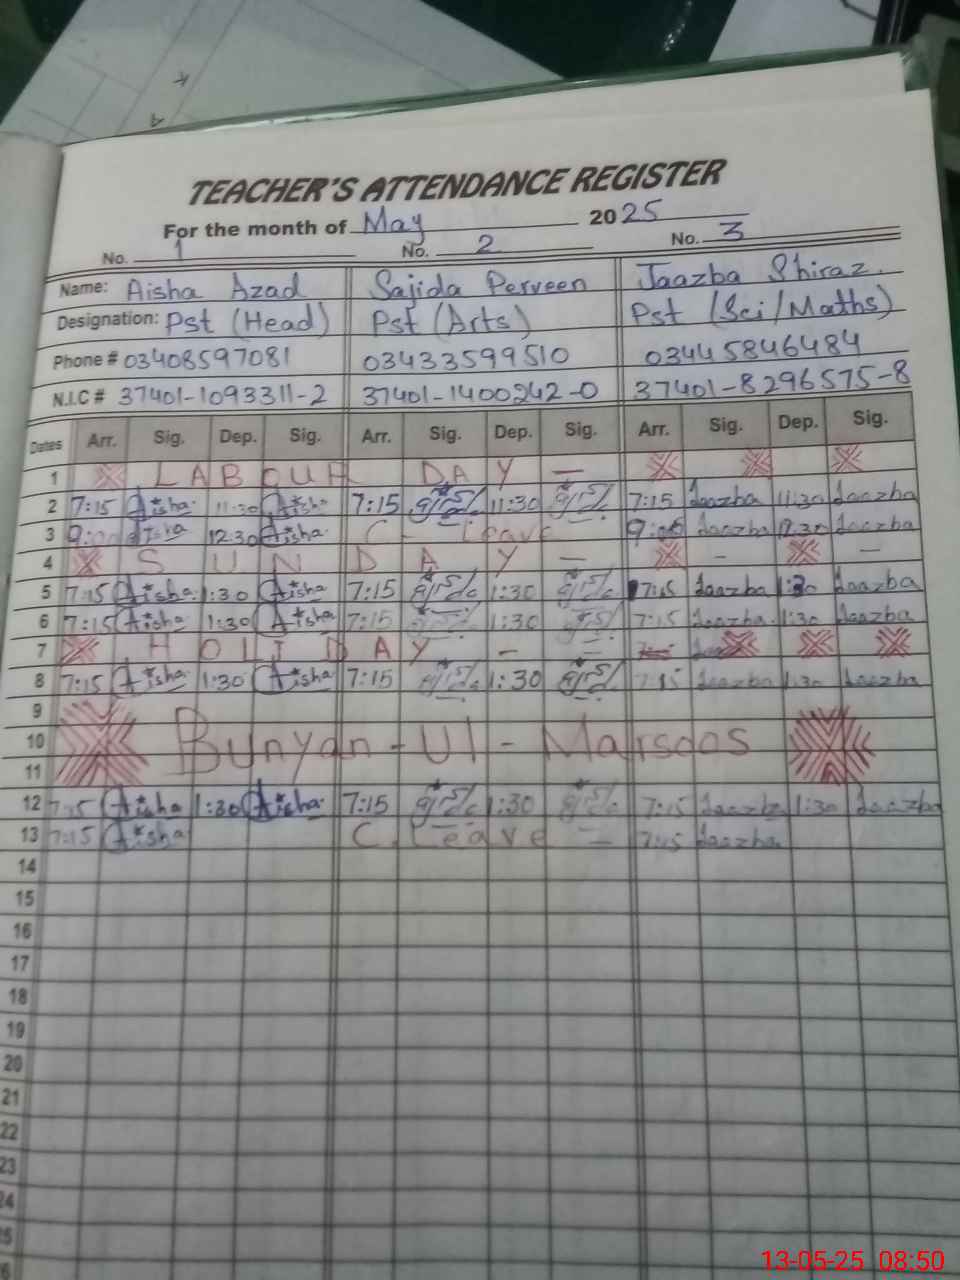 TEACHER'S ATTENDANCE REGISTER
For the month of May 2025
No. 1 No. 2 No. 3
Name: Aisha Azad Sajida Perveen Jaazba Shiraz.
Designation: Pst (Head) Pst (Arts) Pst (Sci/Maths)
Phone # 03408597081 03433599510 03445846484
N.I.C # 37401-1093311-2 37401-1400242-0 37401-8296575-8
Dates Arr. Sig. Dep. Sig. Arr. Sig. Dep. Sig. Arr. Sig. Dep. Sig.
1 LABOUR DAY —
2 7:15 Aisha 11:30 Aisha 7:15 11:30 7:15 Jaazba 11:30 Jaazba
3 9:00 12:30 Aisha C - Leave 9:00 Jaazba 12:30 Jaazba
4 SUNDAY — - —
5 7:15 Aisha 1:30 Aisha 7:15 1:30 7:15 Jaazba 1:30 Jaazba
6 7:15 Aisha 1:30 Aisha 7:15 1:30 7:15 Jaazba 1:30 Jaazba
7 HOLIDAY - -
8 7:15 Aisha 1:30 Aisha 7:15 1:30 7:15 Jaazba 1:30 Jaazba
9
10 Bunyan-Ul-Marsoos
11
12 7:15 Aisha 1:30 Aisha 7:15 1:30 7:15 Jaazba 1:30 Jaazba
13 7:15 Aisha C. Leave — 7:15 Jaazba
14
15
16
17
18
19
20
21
22
23
24
13-05-25 08:50